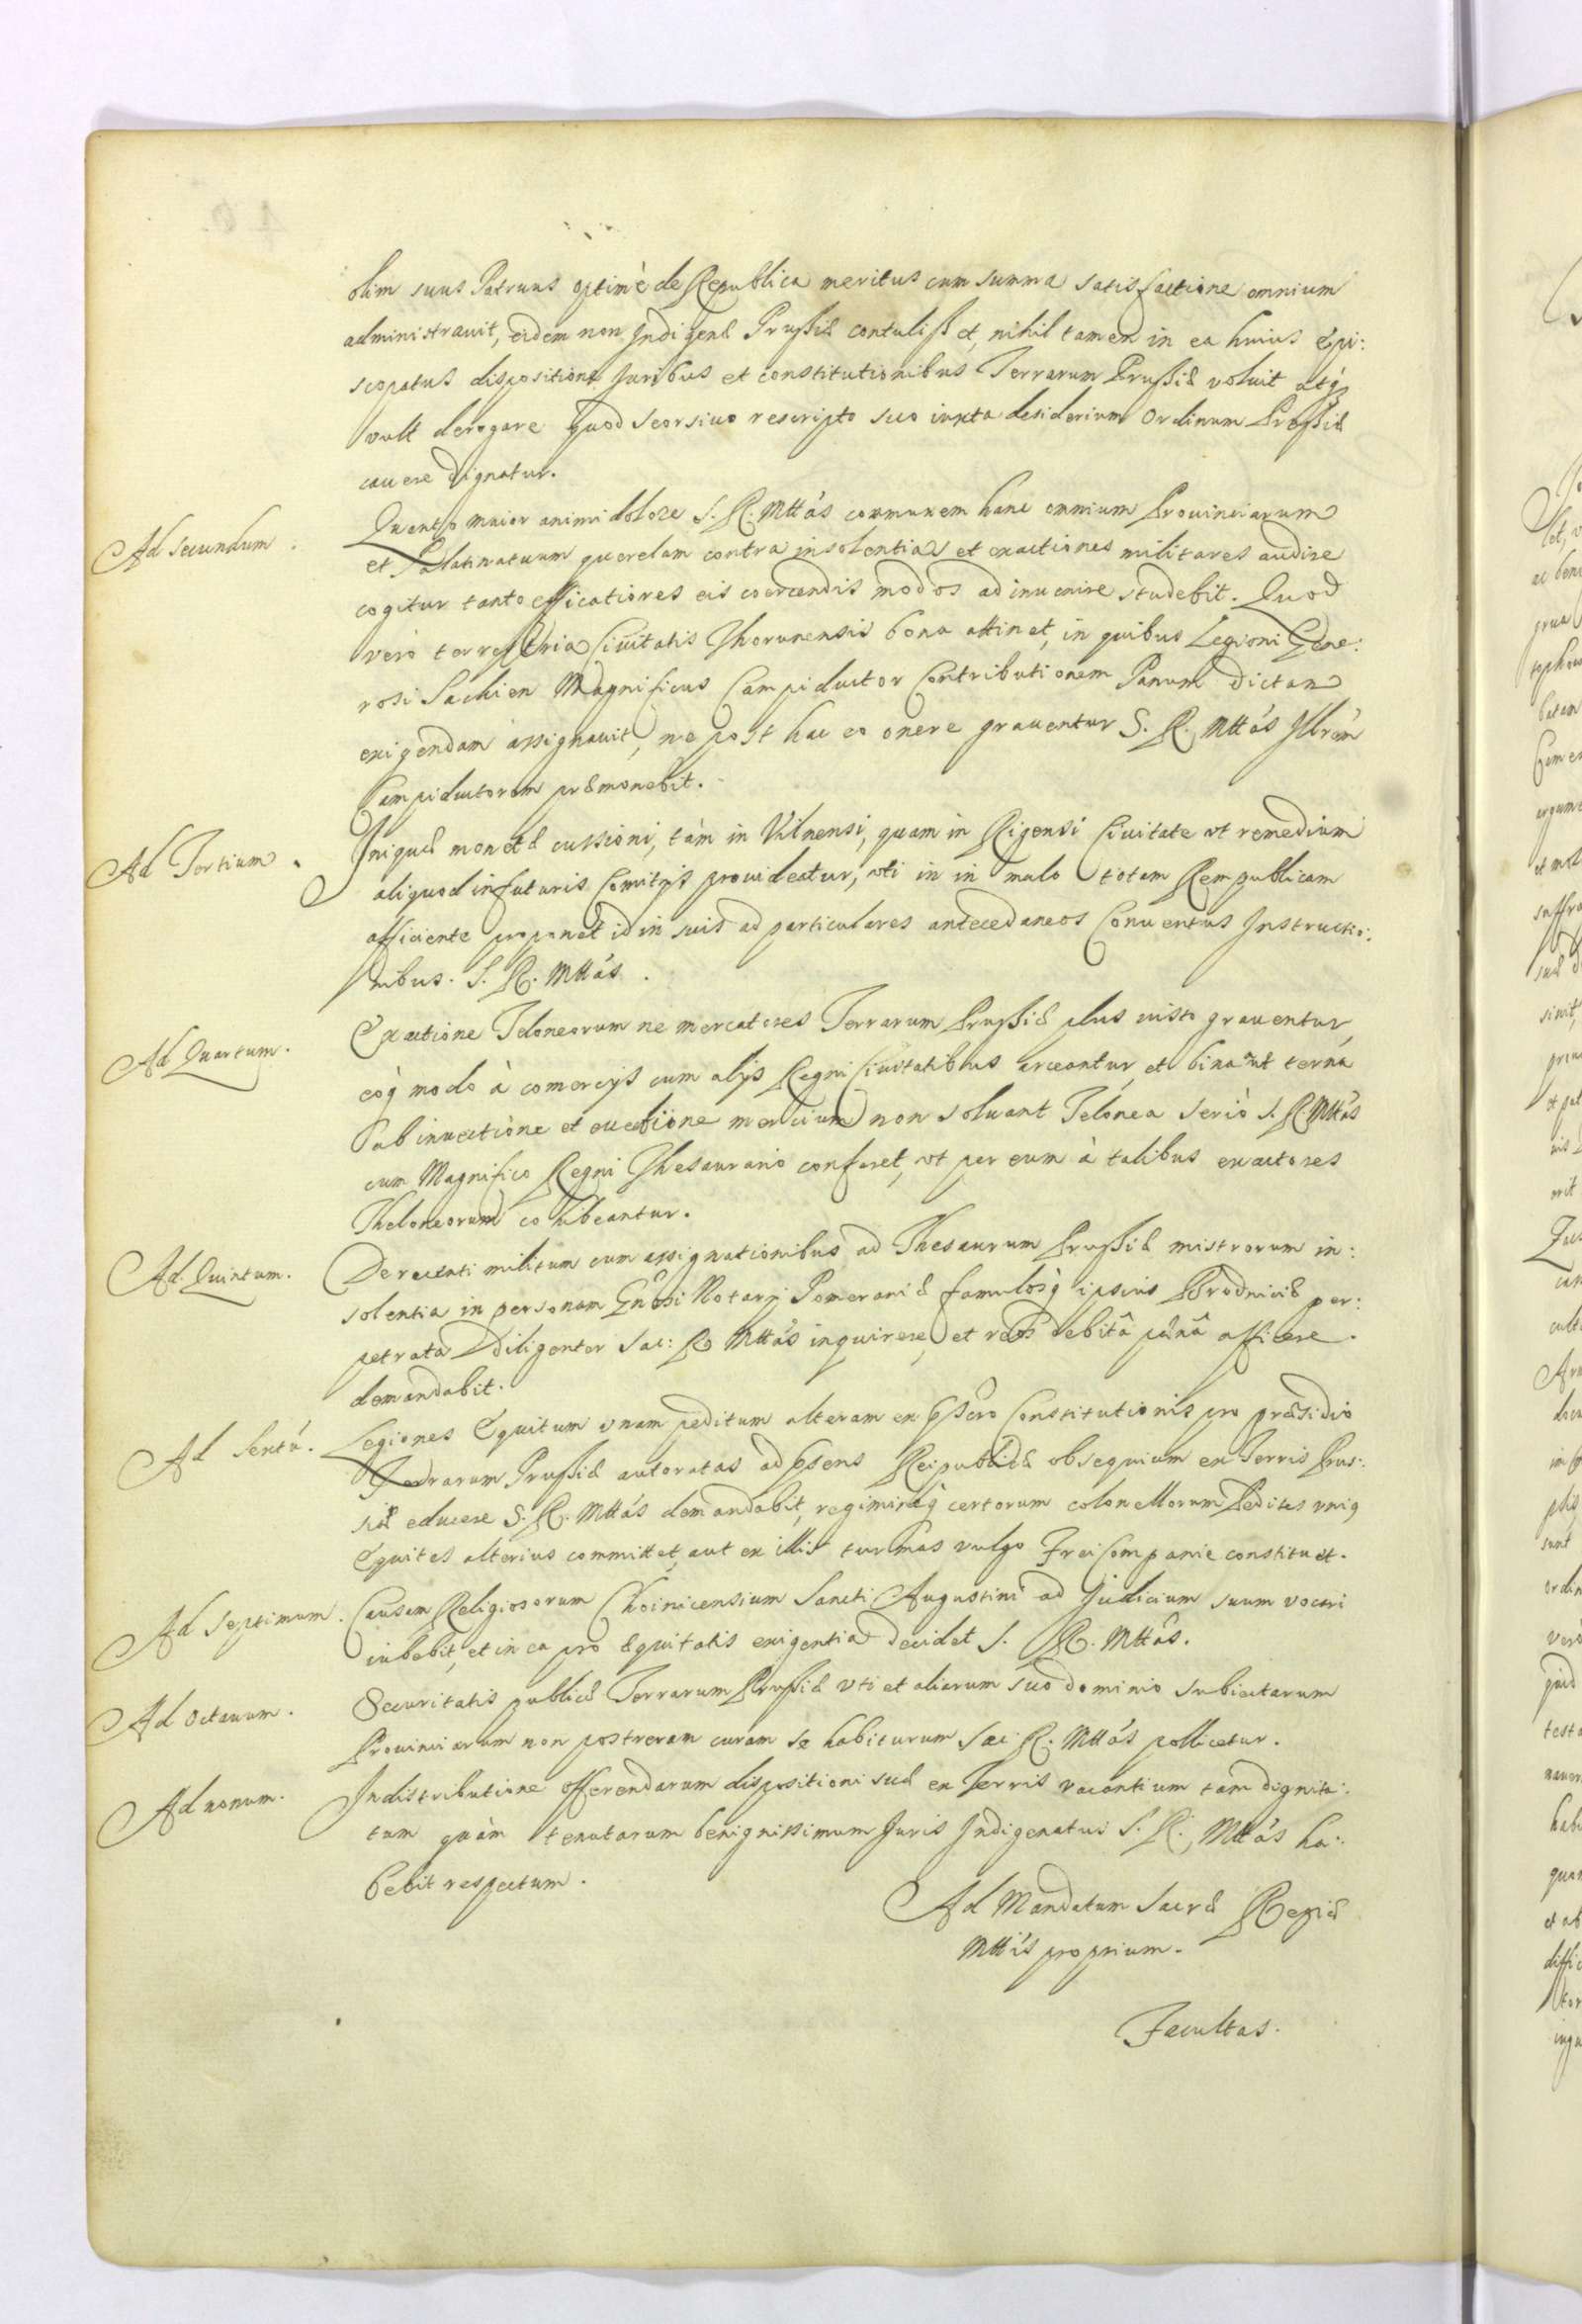 olim suus Patruus optimè de Republica meritus cum summa satisfactione omnium
administrauit, eidem non Indigenæ Prussiæ contulisset, nihil tamen in ea huius Epi:
scopatus dispositione Juribus et constitutionibus Terrarum Prussiæ voluit atq
vult derogare quod seorsiuo rescripto suo iuxta desiderium Ordinum Prussiæ
cauere dignatur.
Ad secundum.
Quanto maior animi dolore S. R. Mttás communem hanc omnium Prouinciarum
et Palatinatuum querelam contra insolentias et exactiones militares audire
cogitur tanto efficatiores eis coercendis modos adinuenire studebit. Quod
verò terrestria Ciuitatis Thorunensis bona attinet, in quibus Legioni Gene:
rosi Sachien Magnificus Campiductor Contributionem Panum dictam
exigendam assignauit, ne post hac eo onere grauentur S. R. Mttás Illrem
Campiductorem præmonebit.
Ad Tertium.
Iniquæ monetæ cussioni, tàm in Vilnensi, quam in Rigensi Ciuitate vt remedium
aliquod in futuris Comitijs prouideatur, vti in in malo totam Rempublicam
afficiente proponet id in suis ad particulares antecedaneos Conuentus Instructio:
nibus. S. R. Mttás.
Ad Quartum.
Exactione Teloneorum ne mercatores Terrarum Prussiæ plus iusto grauentur,
eoq modo à comercijs cum alijs Regni Ciuitatibus arceantur, et bina aut terna
ab inuectiòne et euectione mercium non soluant Telonea seriò S. R. Mttás
cum Magnifico Regni Thesaurario conferet, vt per eum à talibus exactores
Theloneorum cohibeantur.
Ad Quintum.
De recenti militum cum assignationibus ad Thesaurum Prussiæ missorum in:
solentia in personam Gnosi Notarij Pomeraniæ famulosq ipsius Brodniciæ per:
petrata Diligenter Sac: R Mttás inquirere, et reos debitâ pænâ afficere
demandabit.
Ad Sextú.
Legiones Equitum vnam peditum alteram ex Pstero Constitutionis pro præsidio
Terrarum Prussiæ autoratas ad Psens Reipublicæ obsequium ex Terris Prus:
siæ educere S. R. Mttás demandabit, regiminiq certorum colonellorum Pedites vniq
Equites alterius committet, aut ex illis turmas vulgo Frei Companie constituet.
Ad Septimum.
Causam Religiosorum Choinicensium Sancti Augustini ad Judicium suum vocari
iubebit, et in ea pro æquitatis exigentia decidet S. R. Mttás.
Ad Octauum.
Securitatis publicæ Terrarum Prussiæ vti et aliarum suo dominio subiectarum
Prouinciarum non postremam curam se habiturum Sac R. Mttás pollicetur.
Ad nonum.
In distributione offerendarum dispositioni suæ ex Terris vacantium tam dignita:
tum quàm tenutarum benignissimum Juris Indigenatus S. R. Mttás ha:
bebit respectum.
Ad Mandatum Sacræ Regiæ
Mttis proprium.
Facultas.